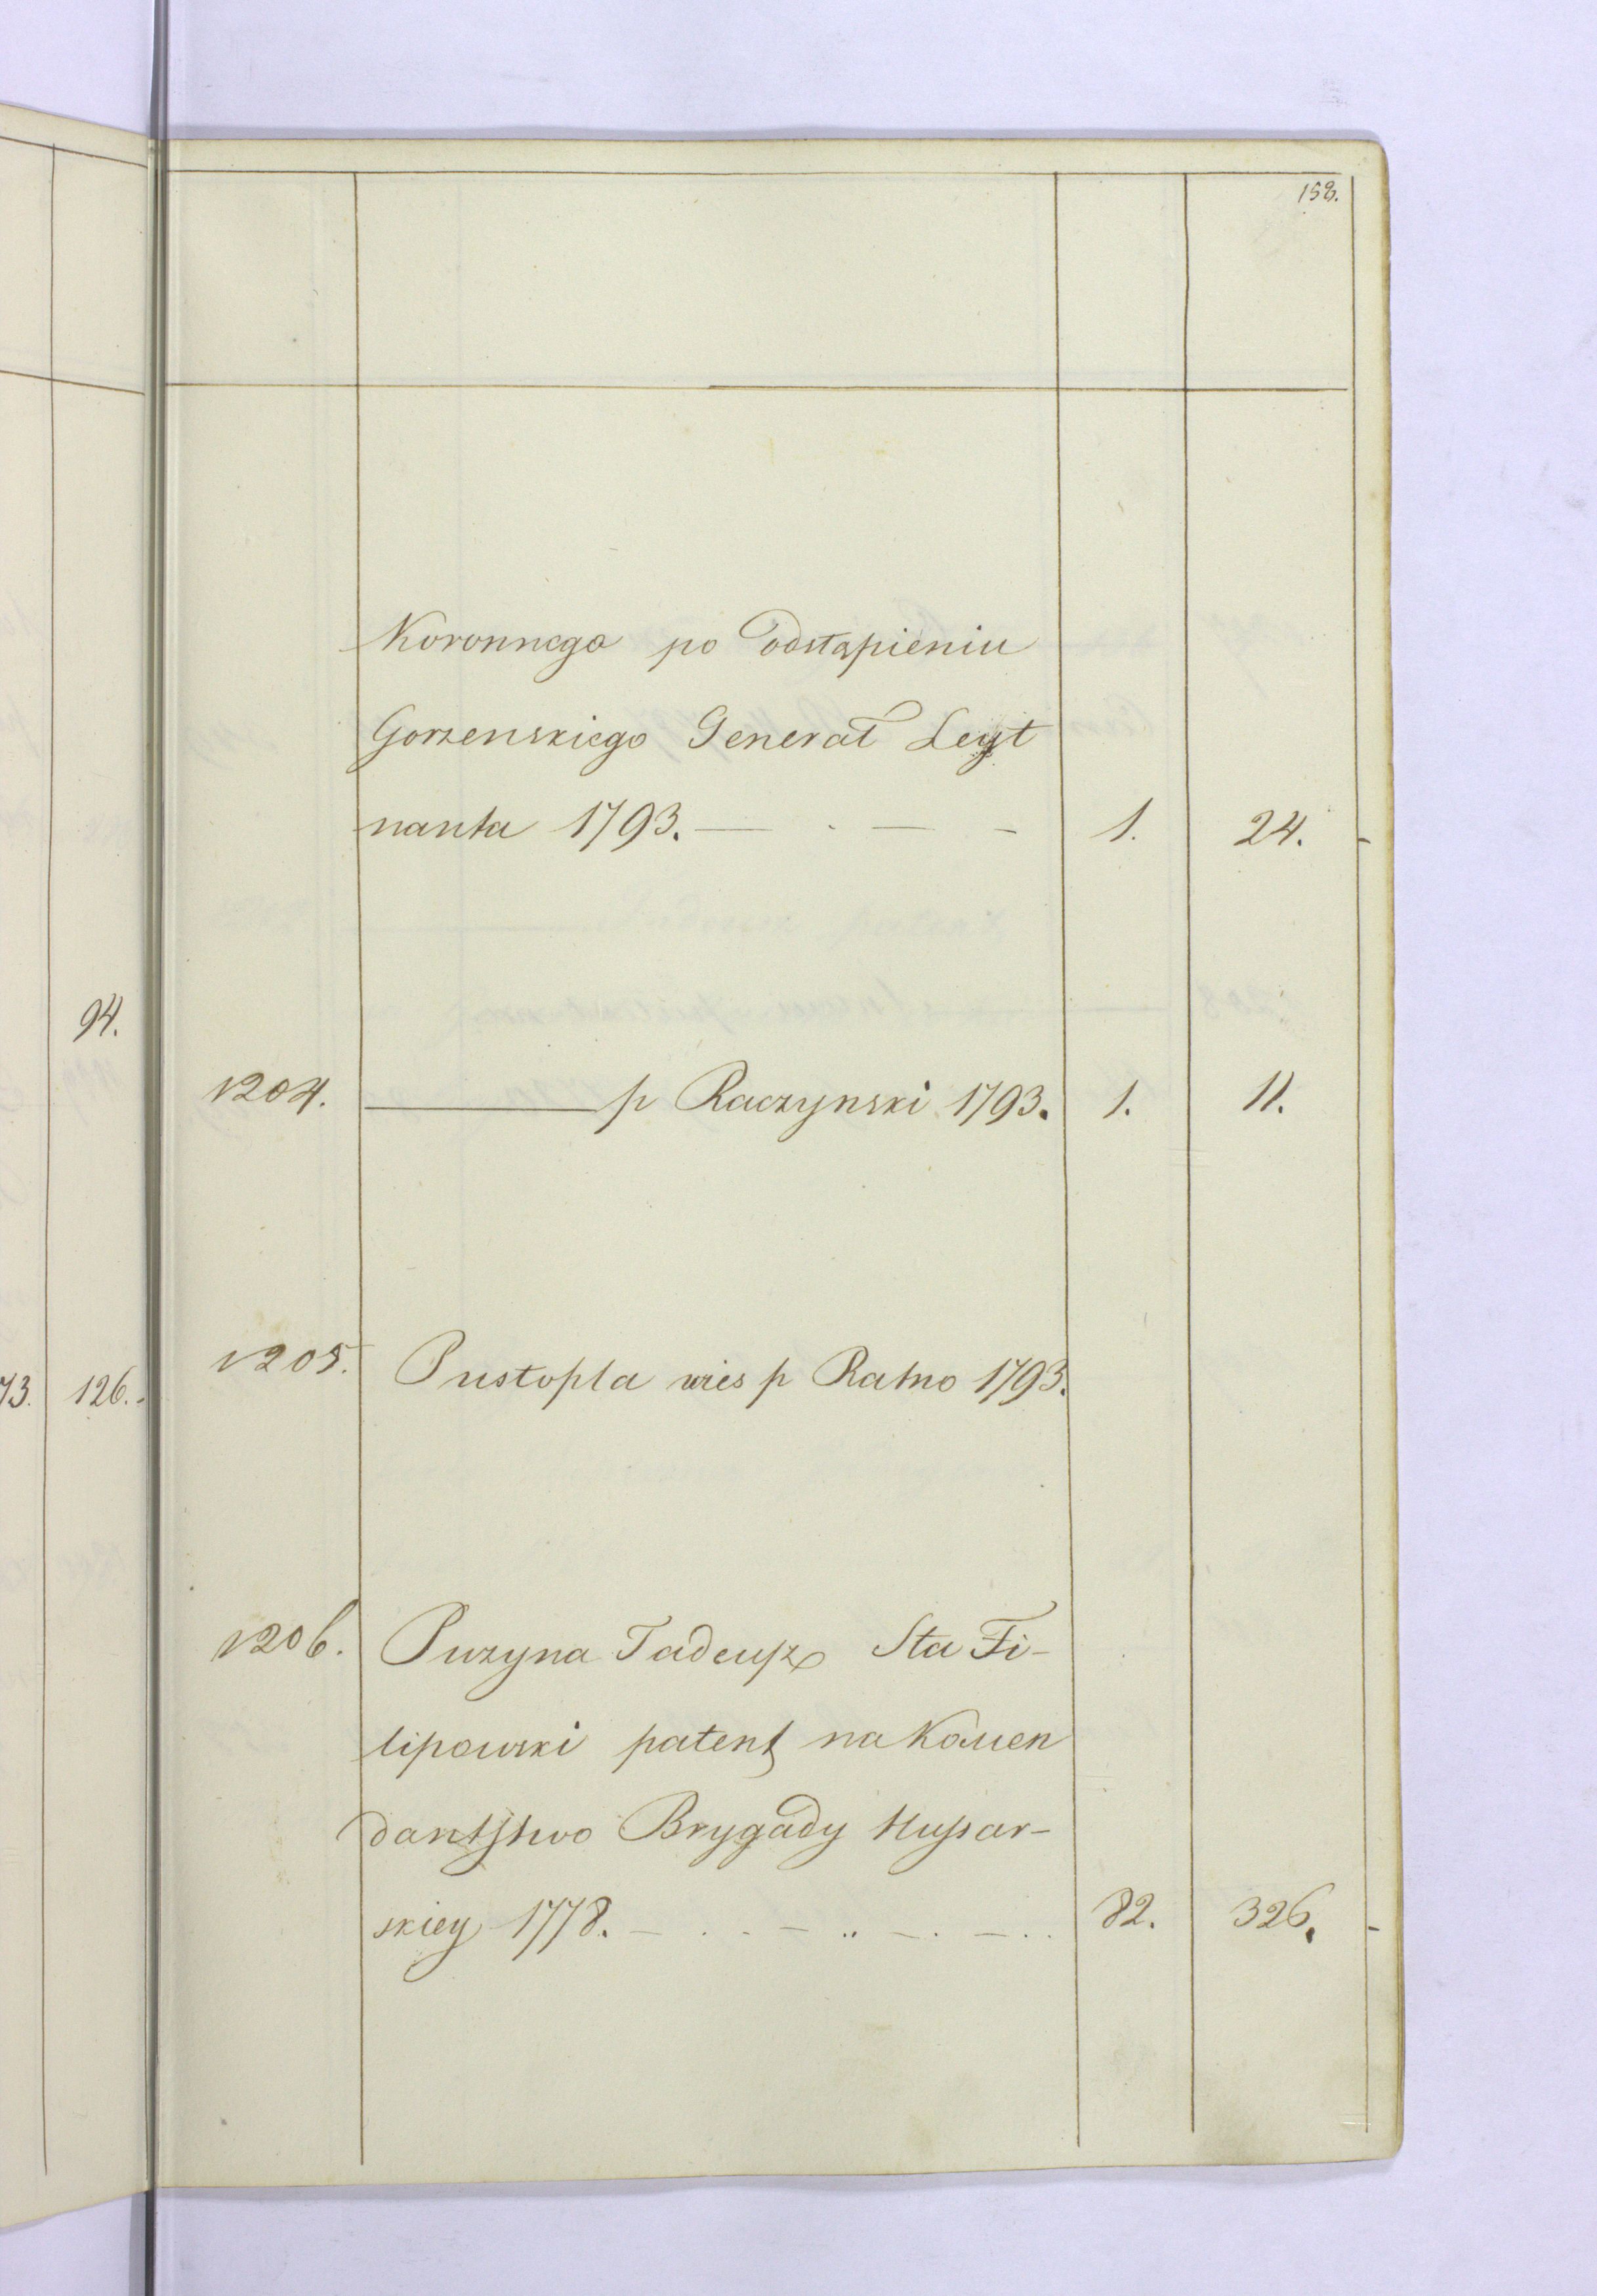 158.
Koronnego po odstąpieniu
Gorzenskiego Generał Leyt
nanta 1793. — . — - 1. 24. -
94.
1204. ——— p Raczynski 1793. 1. 11.
1205. Pustopla wies p Ratno 1793.
73. 126. -
1206. Puzyna Tadeusz Sta Fi-
lipowski patent na Komen
dantstwo Brygady Hussar-
skiey 1778. - . . - .. - . - . . 82. 326. -